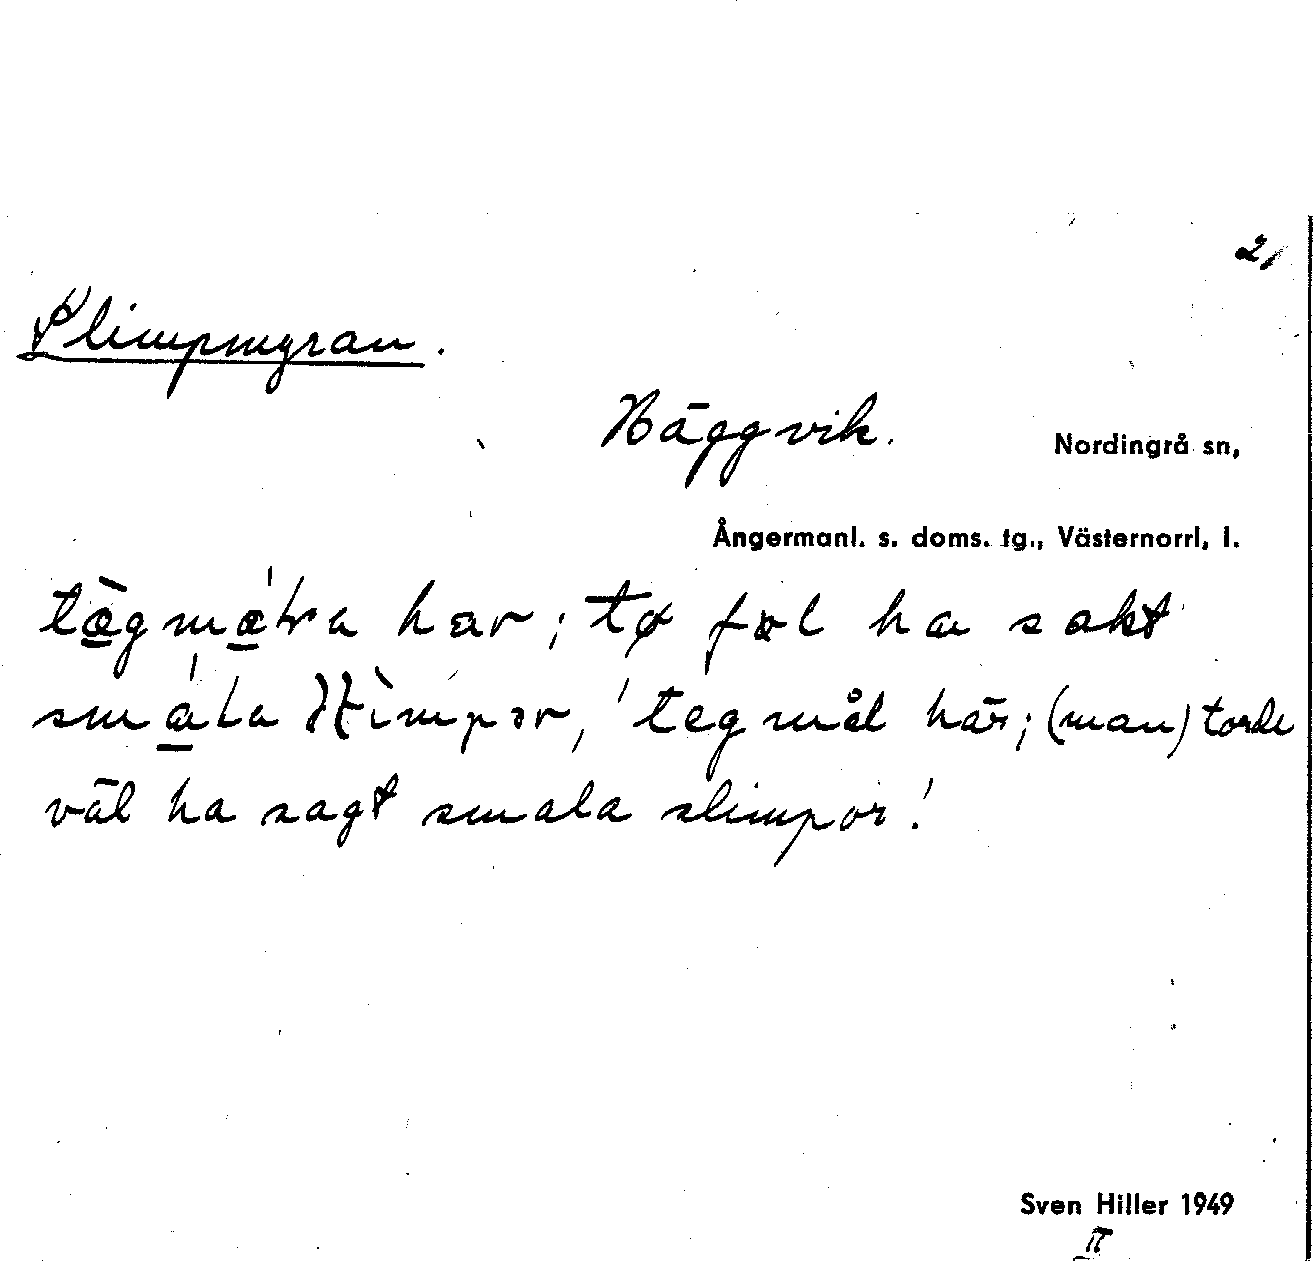 21
Slimpmyran.
Häggvik.
Nordingrå sn,
Ångermanl. s. doms. tg., Västernorrl. l.
har; tø fəl ha sakt
'tegmål här; (man) torde
väl ha sagt smala slimpor'
Sven Hiller 1949
II